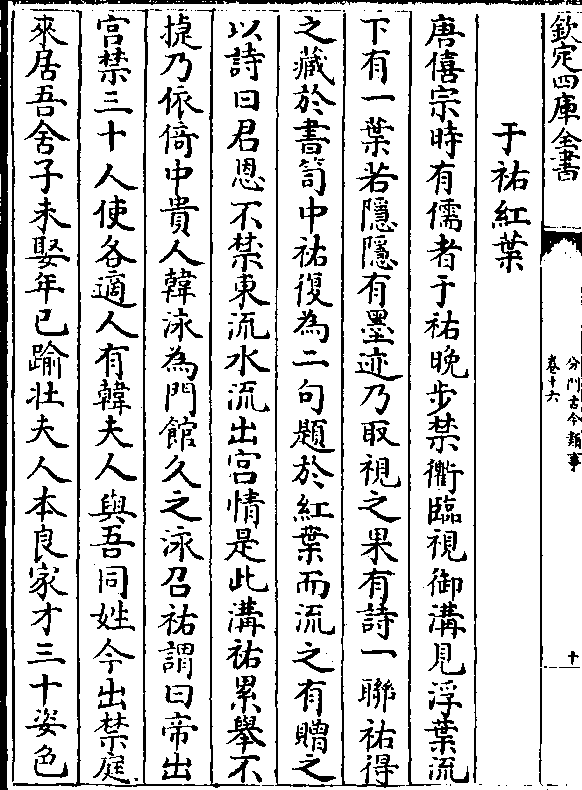 欽定四庫全書
分門古今類事
卷十六
十
于祐紅葉
唐僖宗時有儒者于祐晚步禁衢臨視御溝見浮葉流
下有一葉若隱隱有墨迹乃取視之果有詩一聯祐得
之藏於書笥中祐復為二句題於紅葉而流之有贈之
以詩曰君恩不禁東流水流出宮情是此溝祐累舉不
㨗乃依倚中貴人韓泳為門館久之泳召祐謂曰帝出
宫禁三十人使各適人有韓夫人與吾同姓今出禁庭
來居吾舍子未娶年已踰壮夫人本良家才三十姿色